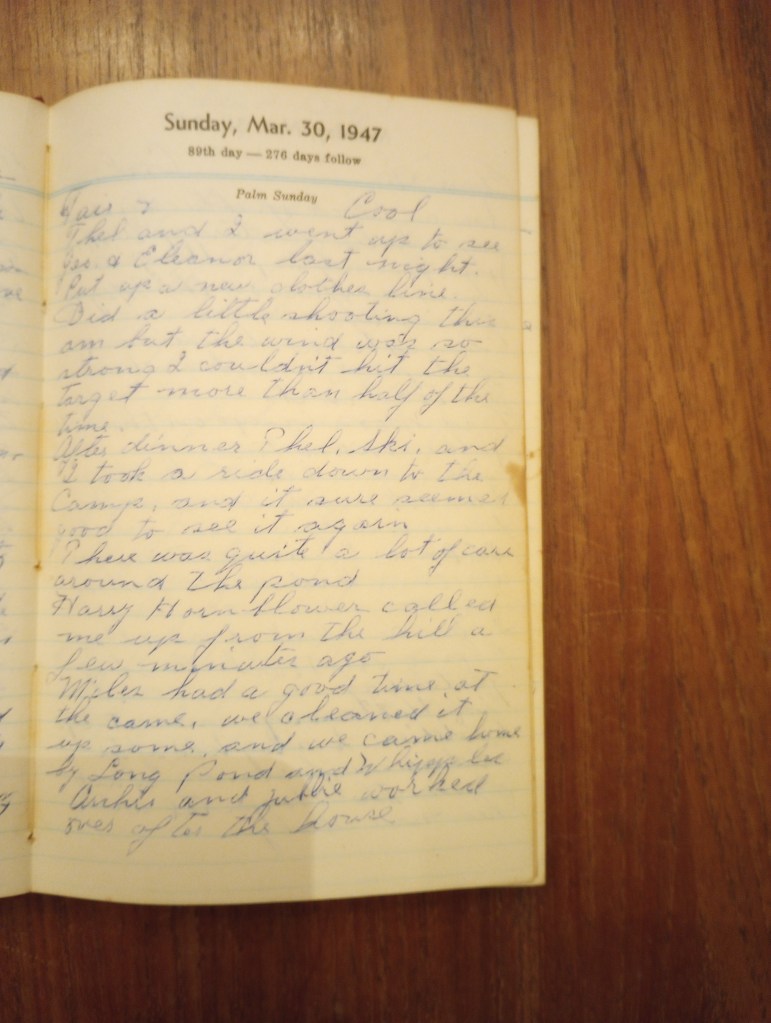 Sunday, Mar. 30, 1947
89th day — 276 days follow
Palm Sunday
Fair & Cool
Phel and I went up to see
& Eleanor last night.
Put up a new clothes line.
Did a little shooting this
am but the wind was so
strong I couldn't hit the
target more than half of the
time.
After dinner Phel, Ski, and
I took a ride down to the
Camp, and it sure seemed
good to see it again
There was quite a lot of cars
around the pond
Harry Hornblower called
me up from the hill a
few minutes ago
Miles had a good time at
the came, we cleaned it
up some, and we came home
by Long Pond and
Archie and worked
over after the house.